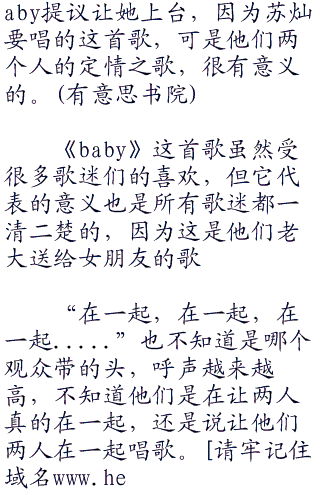 aby提议让她上台，因为苏灿
要唱的这首歌，可是他们两
个人的定情之歌，很有意义
的。(有意思书院)
《baby》这首歌虽然受
很多歌迷们的喜欢，但它代
表的意义也是所有歌迷都一
清二楚的，因为这是他们老
大送给女朋友的歌
“在一起，在一起，在
一起.....”也不知道是哪个
观众带的头，呼声越来越
高，不知道他们是在让两人
真的在一起，还是说让他们
两人在一起唱歌。[请牢记住
域名www.he